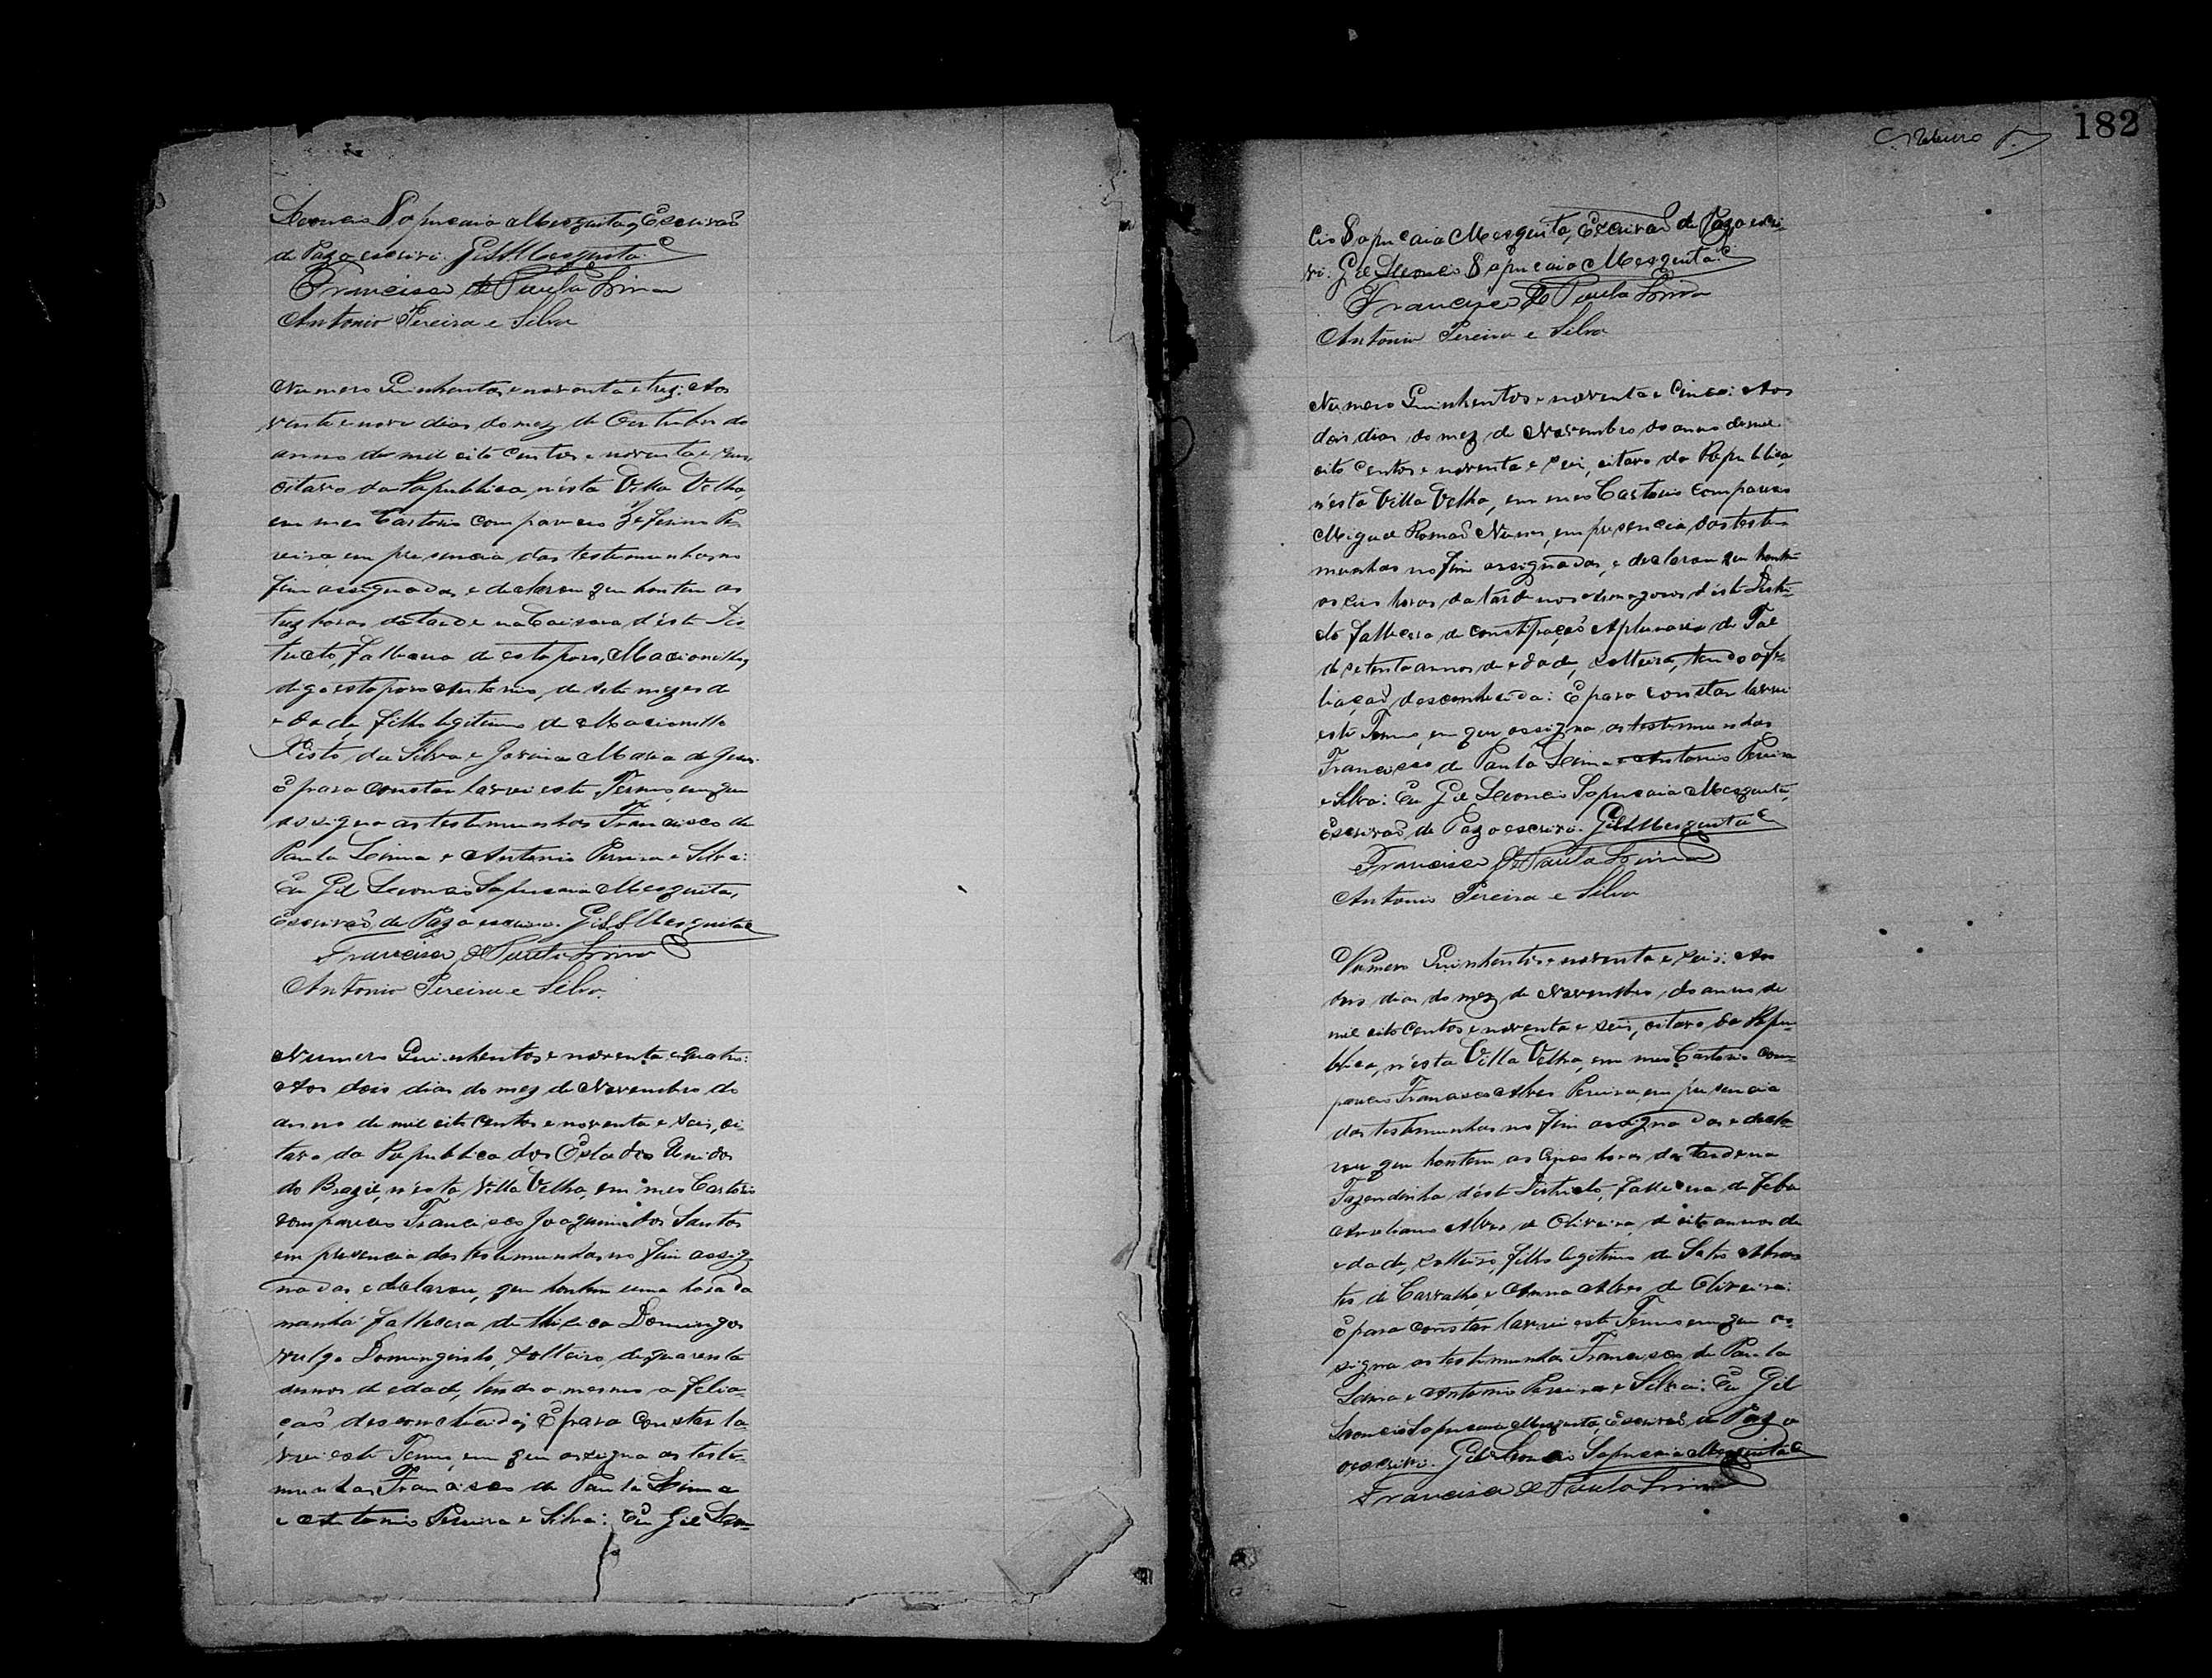 Leoncio Sapucaia Mesquita, Escrivaõ
de Paz o escrivi. Gil L S Mesquita.
Francisco de Paula Lima
Antonio Pereira e Silva
Numero Quinhentos e noventa e trez: Aos
vinte e nove dias do mez de Outubro do
anno de mil oito centos e noventa e seis,
oitavo da Republica, n'esta Villa Velha,
em meo Cartorio compareceo Zeferino Pe-
reira, em presencia das testemunhas no
fim assignadas, e declarou que hontem as
trez horas da tarde na Caisara d'este Dis-
tricto, fallecera de estopor, Macionillo,
digo estopor Antonio, de sete mezes de
edade, filho legitimo de Macionillo
Xisto da Silva e Jovina Maria de Jesus.
E para constar lavrei este Termo, em que
assigna as testemunhas Francisco de
Paula Leima e Antonio Pereira e Silva:
Eu Gil Leoncio Sapucaia Mesquita,
Escrivaõ de Paz o escrivi. Gil L S Mesquita
Francisco de Paula Lima
Antonio Pereira e Silva
Numero Quinhentos e noventa e quatro:
Aos dois dias do mez de Novembro do
anno de mil oito centos e noventa e seis, oi-
tavo da Republica dos Estados Unidos
do Brazil, n'esta Villa Velha, em meo Cartorio
compareceo Francisco Joaquim dos Santos
em presencia das testemunhas no fim assig-
nadas e declarou, que hontem uma hora da
manhã fallecera de thizica Domingos
vulgo Dominguinho, solteiro, de quarenta
annos de edade, tendo o mesmo a felia-
çaõ desconhecida; E para constar la-
vrei este Termo, em que assigna as teste-
munhas Francisco de Paula Leima
e Antonio Pereira e Silva: Eu Gil Leon-
182
C. Ribeiro
cio Sapucaia Mesquita, Escrivaõ de Paz o escri-
vi. Gil Leoncio Sapucaia Mesquita.
Francisco de Paula Lima
Antonio Pereira e Silva
Numero Quinhentos e noventa e Cinco: Aos
dois dias do mez de Novembro do anno de mil
oito centos e noventa e seis, oitavo da Republica,
n'esta Villa Velha, em meo Cartorio compareceo
Miguel Romaõ Nunes, em presencia das teste-
munhas no fim assignadas, e declarou que hontem
as seis horas da tarde nos d'este Distri-
cto fallecera de constipaçaõ Aplunaria de Tal
de setenta annos de edade, solteira, tendo a fe-
liaçaõ desconhecida: E para constar lavrei
este Termo, em que assigna as testemunhas
Francisco de Paula Leima e Antonio Pereira
e Silva: Eu Gil Leoncio Sapucaia Mesquita,
Escrivaõ de Paz o escrivi. Gil L S Mesquita
Francisco de Paula Lima
Antonio Pereira e Silva
Numero Quinhentos e noventa e seis: Aos
dois dias do mez de Novembro, do anno de
mil oito centos e noventa e seis, oitavo da Repu-
blica, n'esta Villa Velha, em meo Cartorio com-
pareceo Francisco Alves Pereira, em presencia
das testemunhas no fim assignadas e decla-
rou que hontem as cinco horas da tarde na
Fazendinha d'este Districto, fallecera de febre
Aureliano Alves de Oliveira, de oito annos de
edade, solteiro, filho legitimo de Abran-
tes de Carvalho e Anna Alves de Oliveira.
E para constar lavrei este Termo em que as-
signa as testemunhas Francisco de Paula
Leima e Antonio Pereira e Silva: Eu Gil
Leoncio Sapucaia Mesquita, Escrivaõ de Paz o
escrivi. Gil Leoncio Sapucaia Mesquita
Francisco de Paula Lima